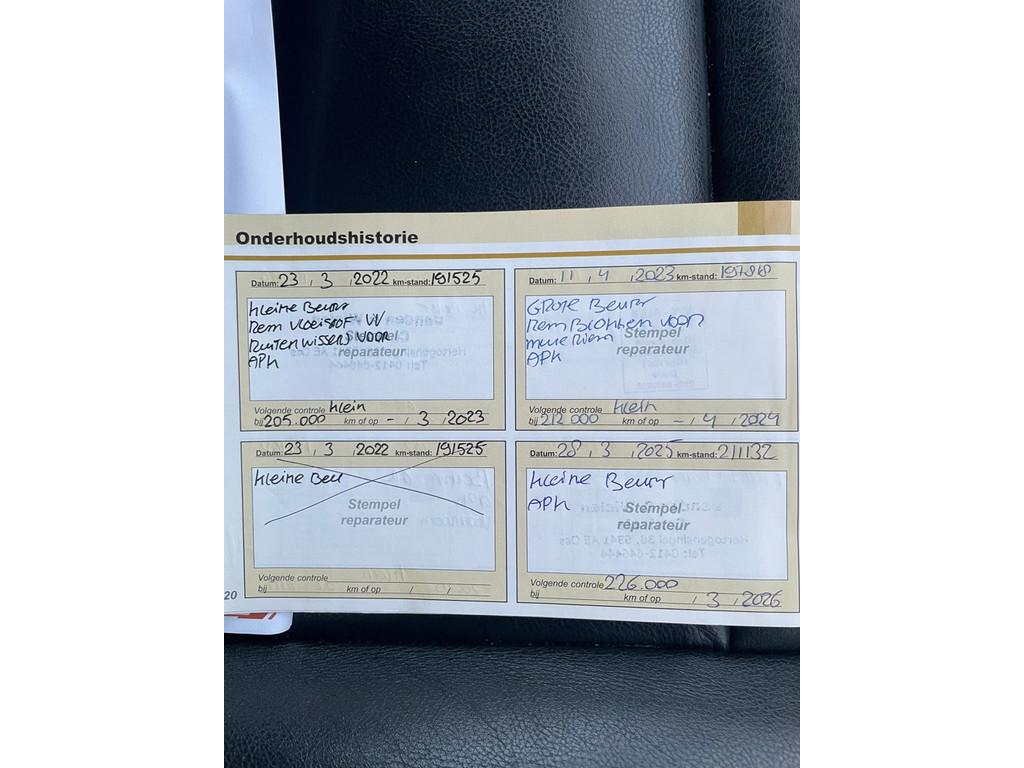 Onderhoudshistorie
Datum: 23 , 3 , 2022 km-stand: 191525
Kleine Beurt
Rem vloeistof VV
Ruitenwissers voor
APK
Stempel
reparateur
Volgende controle Klein
bij 205.000 km of op - , 3 , 2023
Datum: 11 , 4 , 2023 km-stand:
Grote Beurt
Rem Blokken voor
Riem
APK
Stempel
reparateur
Volgende controle Klein
bij 212 000 km of op - , 4 , 2024
Datum: 23 , 3 , 2022 km-stand: 191525
Kleine Beu
Stempel
reparateur
Volgende controle
bij km of op / /
Datum: 28 , 3 , 2025 km-stand: 211132
Kleine Beurt
APK
Stempel
reparateur
Volgende controle 226.000
bij km of op , 3 , 2026
20